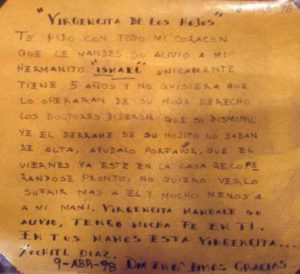 "VIRGENCITA DE LOS HOJOS"
TE PIDO CON TODO MI CORAZON
QUE LE MANDES SU ALIVIO A MI
HERMANITO "ISMAEL" UNICAMENTE
TIENE 5 AÑOS Y NO QUISIERA QUE
LO OPERARAN DE SU HOJO DERECHO
LOS DOCTORES DIJERON QUE SI DISMINU
YE EL DERRAME DE SU HOJITO LO DABAN
DE ALTA, AYUDALO PORFAVOR, QUE EL
VIERNES YA ESTE EN LA CASA RECUPE
RANDOSE PRONTO, NO QUIERO VERLO
SUFRIR MAS A EL Y MUCHO MENOS A
A MI MAMI. VIRGENCITA MANDALE SU
ALIVIO, TENGO MUCHA FE EN TI.
EN TUS MANOS ESTA VIRGENCITA...
XOCHITL DIAZ.
9-ABR-98 GRACIAS.